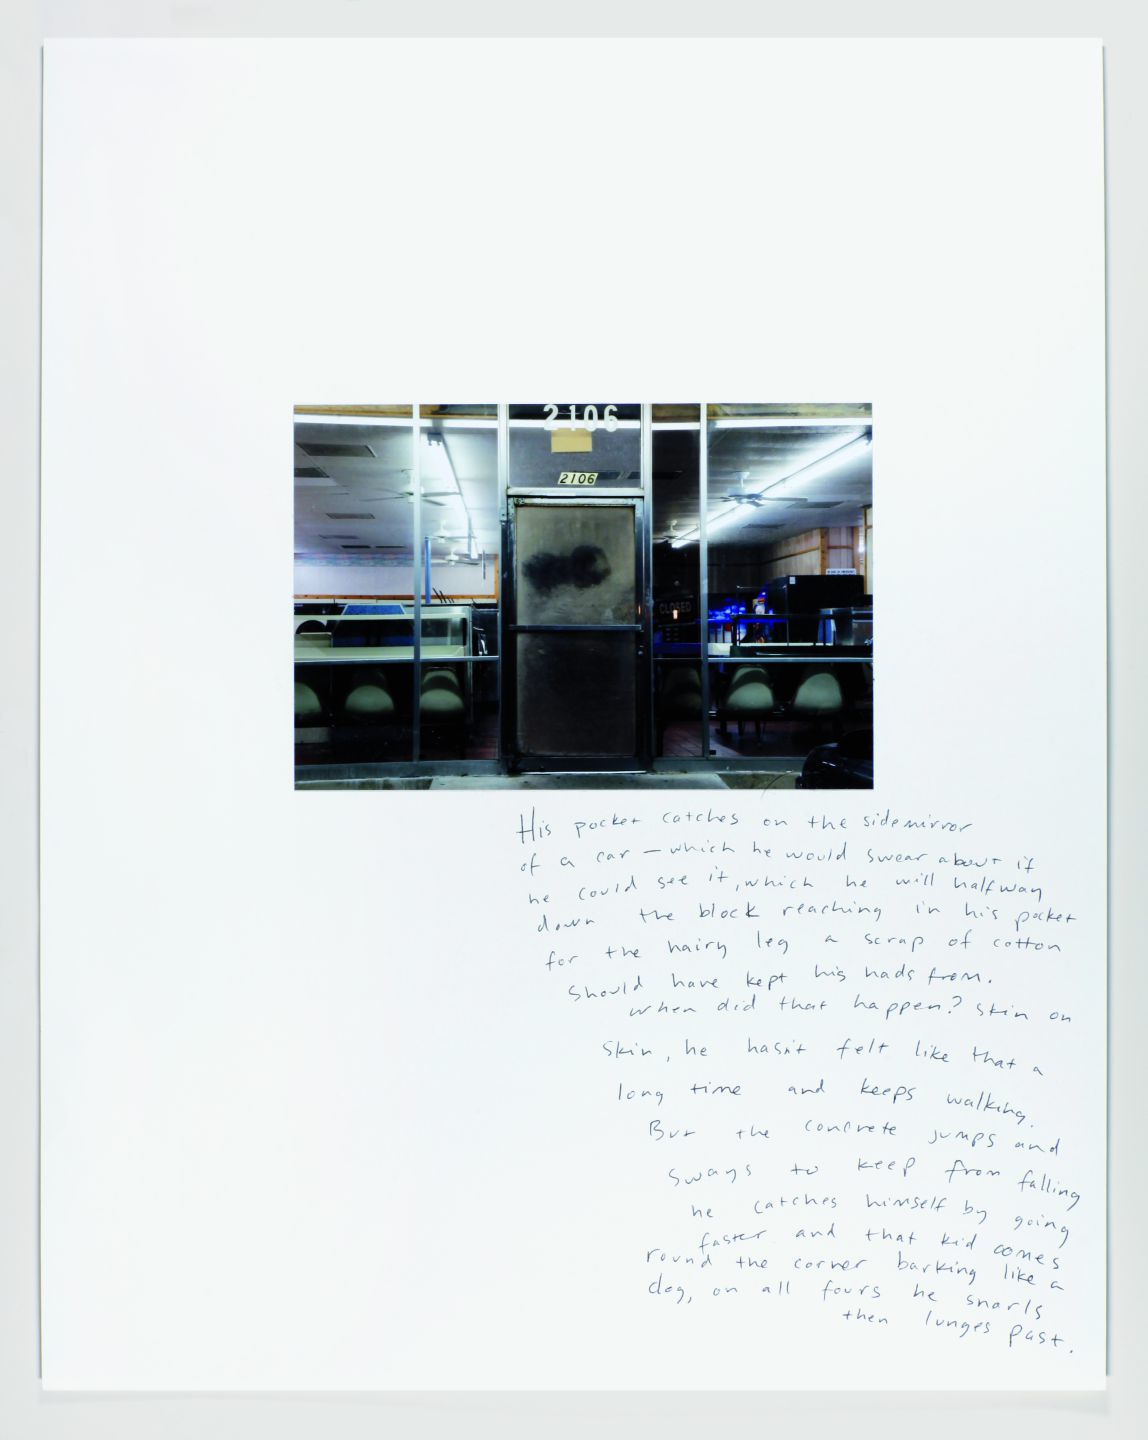 2106
2106
CLOSED
His pocket catches on the sidemirror
of a car – which he would swear about if
he could see it, which he will halfway
down the block reaching in his pocket
for the hairy leg a scrap of cotton
should have kept his hads from.
when did that happen? skin on
skin, he hasn't felt like that a
long time and keeps walking.
But the concrete jumps and
sways to keep from falling
he catches himself by going
faster and that kid comes
round the corner barking like a
dog, on all fours he snarls
then lunges past.